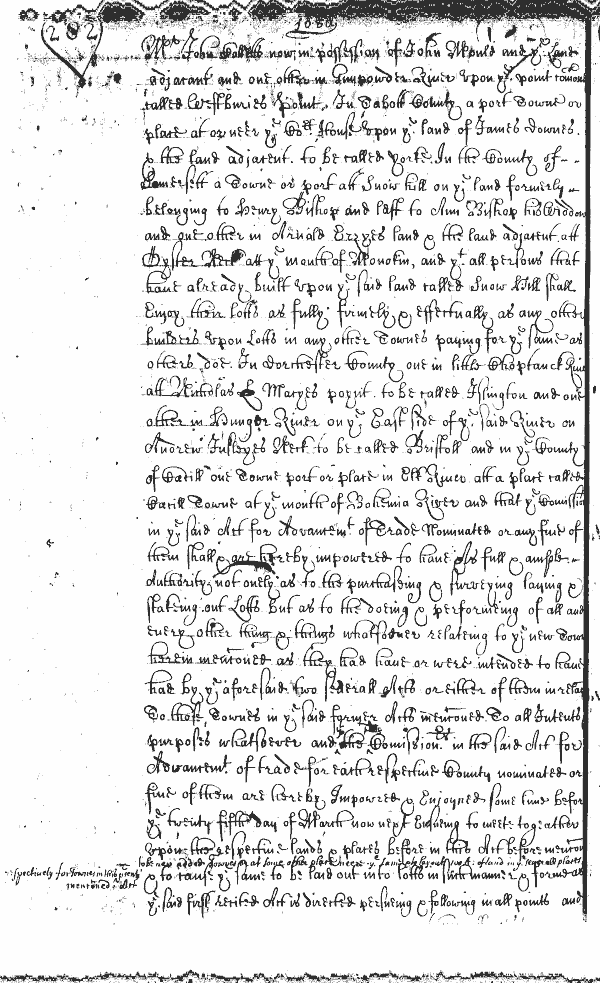 282
Mr. John Colletts now in possession of John Mould and ye. Land
adjacant and one other in Gunpowder River upon ye. point comonly
called Westburies Point. In Talbott County a port Towne or
place at or neer ye. Cort House upon ye. land of James Downes.
& the land adjacent. to be called Yorke. In the County of --
Somersett a Towne or port att Snow hill on ye. land formerly --
belonging to Henry Bishop and last to Ann Bishop his Widdow
and one other in Arnald Erzyes land & the land adjacent att
Oyster Neck att ye. mouth of Monokin, and yt. all persons that
have already built upon ye. said land called Snow Hill shall
Enjoy their lotts as fully firmely & effectually as any other
builders upon Lotts in any other Townes paying for ye. same as
others doe. In Dorchester County one in little Choptanck River
att Nicholas Maryes poynt. to be called Islington and one
other in Hunger River on ye. East side of ye. said River on
Andrew Insleyes Neck to be called Bristoll and in ye. County
of Cecill one Towne port or place in Elk River att a place called
Cecill Towne at ye. mouth of Bohemia River and that ye. Comissionrs
in ye. said Act for Advancemt. of Trade Nominated or any five of
them shall & are hereby impowered to have as full & ample --
Authority not onely as to the purchasing & surveying laying &
stakeing out Lotts But as to the doeing & performeing of all and
every other thing & things whatsoever relateing to ye. new Townes
herein menconed as they had have or were intended to have
had by ye. aforesaid two severall Acts or either of them in relacon
To those Townes in ye. said former Acts menconed To all Intents
purposes whatsoever and the Comissionrs. in the said Act for
Advancemt. of trade for each respective County nominated or
five of them are hereby Impowred & Enjoyned some time before
ye. twenty fifth day of March now next Ensueing to meete together
upon the respective lands & places before in this Act before menconed
spectively for Townes in this psent
menconed Act
& to cause ye. same to be laid out into lotts in such manner & forme as
ye. said first recited Act is directed persueing & following in all points and